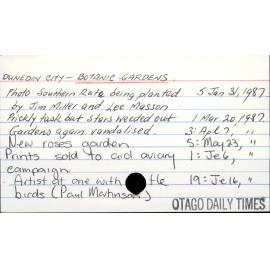 DUNEDIN CITY - BOTANIC GARDENS.
Photo: Southern Rata being planted 5 Jan 31, 1987.
by Jim Miller and Lee Masson
Prickly task but stars weeded out 1 Mar. 20, 1987.
Gardens again vandalised. 3: Apl 7, "
New roses garden. 5: May 23, "
Prints sold to aid aviary 1: Je 6, "
campaign
Artist at one with the 19: Je 16, "
birds (Paul Martinson)
OTAGO DAILY TIMES